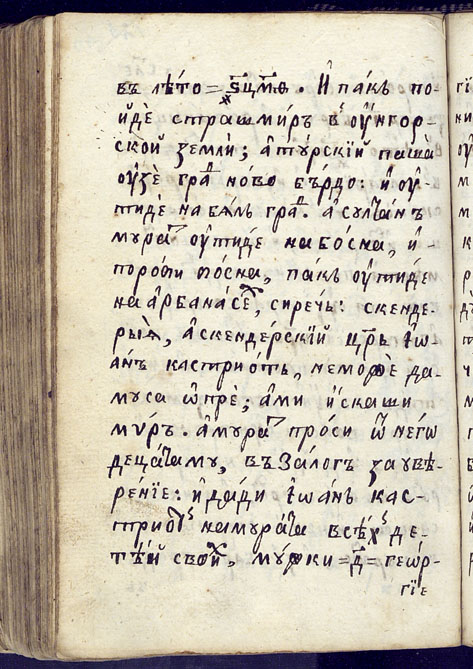 въ лѣ́то = ѕ҃цм҃ѳ . И҆ па́къ по-
йдѐ страшми́ръ в ѹ҆нгор-
ской земли́; а҆тꙋ́рскїй паша̀
ѹ҆зѐ гра́д но́во бъ́рдо: и҆ ѹ҆-
тидѐ на бѧ́лъ гра́д. а҆сꙋлта́нъ
мꙋра́т ѹ҆тидѐ на бо́сна, и҆
пороби бо́сна, па́къ ѹ҆тидѐ
на а҆рбана́се, сиречь: скенде-
рыѧ̀, а҆скендерскїй цр҃ь і҆ѡ-
а́нъ кастрио́тъ, немо́же да-
мꙋса ѡ҆прѐ; а҆ми и҆скаши
ми́ръ. а҆мꙋра́т про́си ѿ негѡ
деца́та мꙋ, въ зало́гъ за ꙋвѣ-
ре́нїе: и҆ да́ди і҆ѡа́нъ кас-
трио́тъ на мꙋра́та всѣ́хъ де-
тѣ́й свои́х, мꙋ́жки = д҃ = гео́р-
гїе